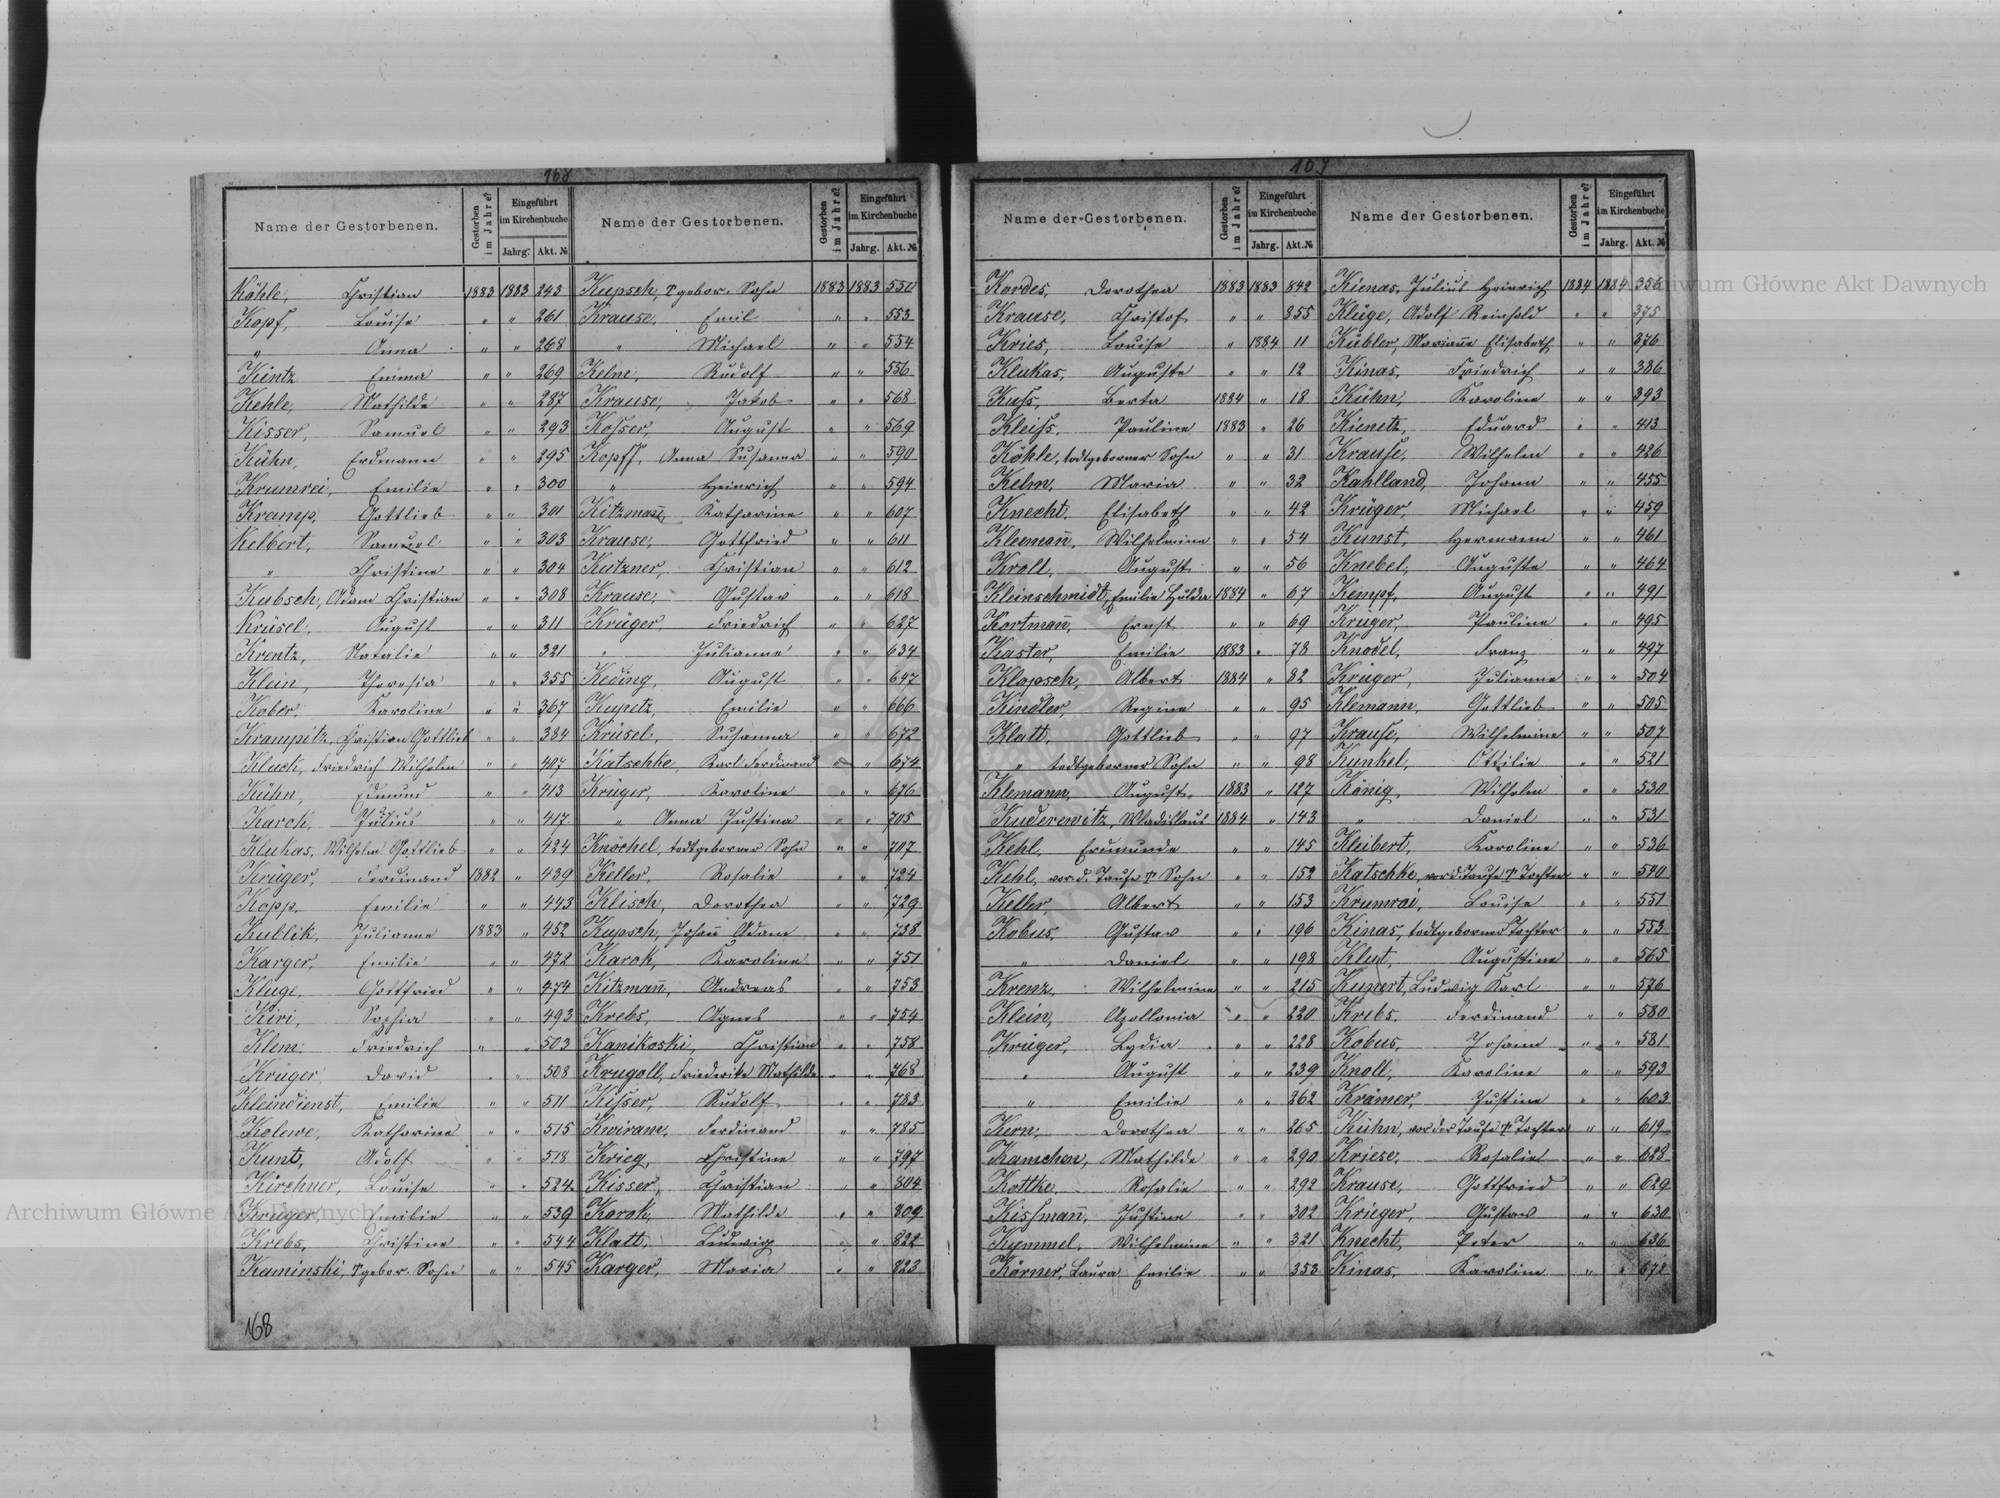 168
Name der Gestorbenen. Gestorben im Jahre? Eingeführt im Kirchenbuche Jahrg. Akt. №
Köhle, Christian 1883 1883 243
Kopf, Louise " " 261
" Anna " " 268
Kintz Emma " " 269
Kehle, Mathilde " " 287
Kisser, Samuel " " 293
Kühn, Erdmann " " 295
Krumrei, Emilie " " 300
Kramp, Gottlieb " " 301
Kelbert, Samuel " " 303
" Christine " " 304
Kubsch, Adam Christian " " 308
Krüsel, August " " 311
Krentz, Natalie " " 321
Klein, Theresia " " 355
Kober, Karoline " " 367
Krampitz, Christian Gottlieb " " 384
Kluck, Friedrich Wilhelm " " 407
Kühn, Edmund " " 413
Karch, Julius " " 417
Klukas, Wilhelm Gottlieb " " 424
Krüger, Ferdinand 1882 " 439
Kopp, Emilie " " 443
Kublik, Julianne 1883 " 452
Karger, Emilie " " 472
Kluge, Gottfried " " 474
Kiri, Sophia " " 493
Klem, Friedrich " " 503
Krüger David " " 508
Kleindienst, Emilie " " 511
Kolewe, Katharine " " 515
Kunt, Adolf " " 518
Kirchner, Louise " " 524
Krüger, Emilie " " 539
Krebs, Christine " " 544
Kaminski, † gebor. Sohn " " 545
168
Name der Gestorbenen. Gestorben im Jahre? Eingeführt im Kirchenbuche Jahrg. Akt. №
Kupsch, † gebor. Sohn 1883 1883 551
Krause, Emil " " 553
" Michael " " 554
Kelm, Rudolf " " 556
Krause, Jakob " " 568
Kosser, August " " 569
Kopff, Anna Susanna " " 590
" Heinrich " " 594
Kitzmañ, Katharine " " 607
Krause, Gottfried " " 611
Kutzner, Christian " " 612
Krause, Gustav " " 618
Krüger, Friedrich " " 627
" Julianne " " 634
Keding, August " " 647
Kupetz, Emilie " " 666
Krüsel, Susanna " " 672
Katschke, Karl Ferdinand " " 674
Krüger, Karoline " " 676
" Anna Justina " " 705
Knöchel, todtgeborner Sohn " " 707
Keller, Rosalie " " 724
Klisch, Dorothea " " 729
Kupsch, Johañ Adam " " 738
Karch, Karoline " " 751
Kitzmañ, Andreas " " 753
Krebs, Agnes " " 754
Kanikoski, Christian " " 758
Krugoll, Friederike Mathilde " " 768
Kisser, Rudolf " " 783
Kwiram, Ferdinand " " 785
Krieg, Christine " " 797
Kisser, Christian " " 804
Karch, Mathilde " " 809
Klatt, Ludwig " " 822
Karger, Maria " " 823
Name der Gestorbenen. Gestorben im Jahre? Eingeführt im Kirchenbuche Jahrg. Akt. №
Kordes, Dorothea 1883 1883 842
Krause, Christof " " 855
Kries, Louise " 1884 11
Klukas, Auguste " " 12
Kuss, Berta 1884 " 18
Kleiss, Pauline 1883 " 26
Köhle, todtgeborner Sohn " " 31
Kelm, Maria " " 32
Knecht, Elisabeth " " 42
Kleemañ, Wilhelmine " " 54
Kroll, August " " 56
Kleinschmidt, Emilie Hulda 1884 " 67
Kortmañ, Ernst " " 69
Kaster, Emilie 1883 " 78
Klopsch, Albert 1884 " 82
Kindler, Regine " " 95
Klatt, Gottlieb " " 97
" todtgeborner Sohn " " 98
Klemann, August 1883 " 127
Kuderewitz, Wladislaus 1884 " 143
Kehl, Ermunde " " 145
Kehl, vor d. Taufe † Sohn " " 152
Keller, Albert " " 153
Kobus, Gustav " " 196
" Daniel " " 198
Krenz, Wilhelmine " " 215
Klein, Apollonia " " 220
Krüger, Lydia " " 228
" August " " 239
" Emilie " " 262
Kern, Dorothea " " 265
Kamchen, Mathilde " " 290
Kottke, Rosalie " " 292
Kissmañ, Justine " " 302
Kymmel, Wilhelmine " " 321
Körner, Laura Emilie " " 353
Name der Gestorbenen. Gestorben im Jahre? Eingeführt im Kirchenbuche Jahrg. Akt. №
Kienas, Julius Heinrich 1884 1884 356
Kluge, Adolf Reinhold " " 375
Kübler, Mariane Elisabeth " " 376
Kinas, Friedrich " " 386
Kühn, Karoline " " 393
Kienetz, Eduard " " 413
Krause, Wilhelm " " 426
Kahlland, Johann " " 455
Krüger, Michael " " 459
Kunst, Hermann " " 461
Knebel, Auguste " " 464
Kempf, August " " 491
Krüger, Pauline " " 495
Knodel, Franz " " 497
Krüger, Julianne " " 504
Klemann, Gottlieb " " 505
Krause, Wilhelmine " " 507
Kunkel, Ottilie " " 521
König, Wilhelm " " 530
" Daniel " " 531
Kleibert, Karoline " " 536
Katschke, vor d. Taufe † Tochter " " 540
Krumrai, Louise " " 551
Kinas, todtgeborne Tochter " " 553
Klut, Augustine " " 565
Kunert, Ludwig Karl " " 576
Krebs, Ferdinand " " 580
Kobus, Johann " " 581
Knoll, Karoline " " 593
Krämer, Justine " " 603
Kühn, vor der Taufe † Tochter " " 619
Kriese, Rosalie " " 628
Krause, Gottfried " " 629
Krieger, Gustav " " 630
Knecht, Peter " " 636
Kinas, Karoline " " 678
Archiwum Główne Akt Dawnych
Archiwum Główne Akt Dawnych